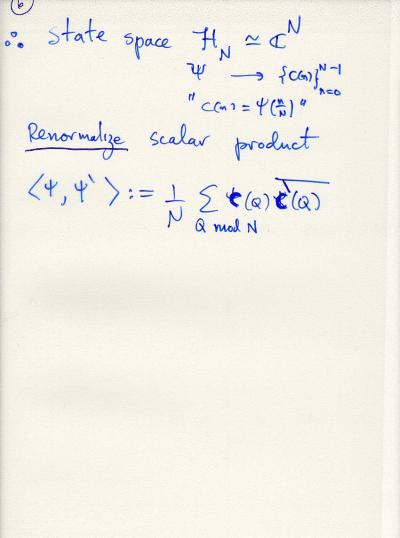 6
∴ State space H_N ≃ ℂ^N
Ψ ⟶ {c(n)}_{n=0}^{N-1}
"c(n) = Ψ(n/N)"
Renormalize scalar product
⟨Ψ, Ψ'⟩ := 1/N ∑_{Q mod N} c(Q) \overline{c'(Q)}